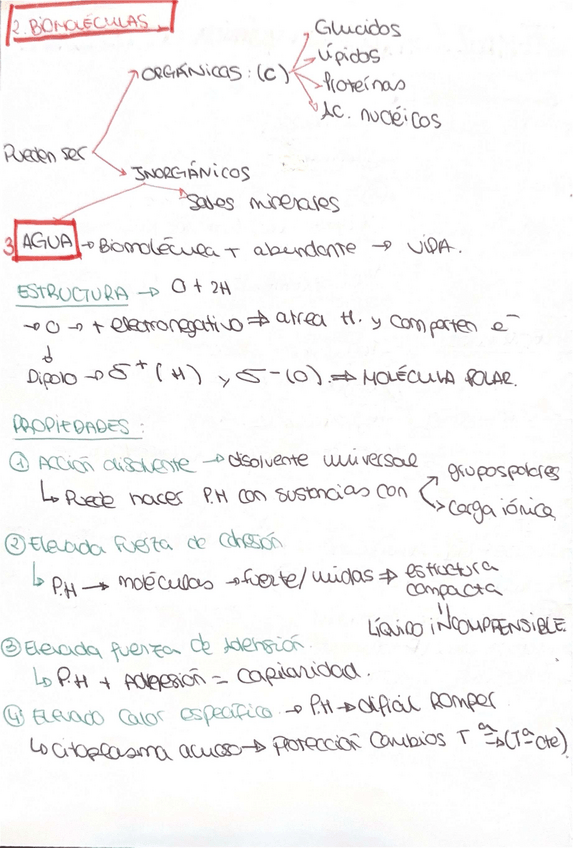 2. BIOMOLÉCULAS.
Glucidos
Lípidos
Proteínas
Ac. nucléicos
ORGÁNICAS: (C)
Pueden ser
INORGÁNICOS
Sales minerales
3 AGUA → Biomolécula + abundante → VIDA.
ESTRUCTURA → O + 2H
→ O → + electronegativo ⇒ atrea H. y comparten e⁻
↓
Dipolo → δ⁺ (H) y δ⁻ (O). ⇒ MOLÉCULA POLAR.
PROPIEDADES:
① Acción disolvente → disolvente universal
↳ Puede hacer P.H con sustancias con
grupos polares
carga iónica
② Elevada fuerza de cohesión
↳ P.H → moléculas → fuerte/unidas ⇒ estructura
compacta
LÍQUIDO INCOMPRENSIBLE.
③ Elevada fuerza de adhesión.
↳ P.H + Adhesión = capilaridad.
④ Elevado calor específico → P.H → dificil romper
↳ citoplasma acuoso → Protección cambios Tª ⇒ (Tª cte)